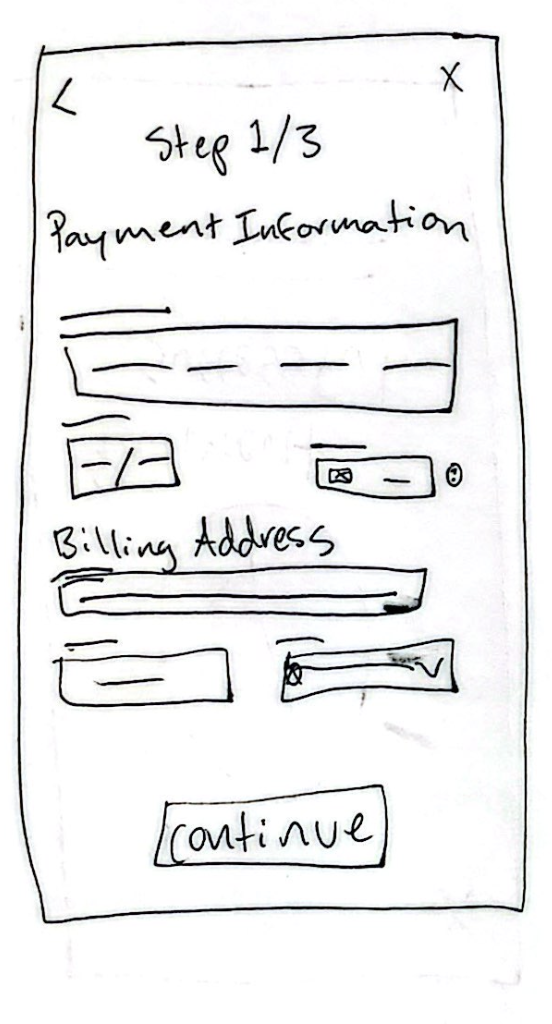 < X
Step 1/3
Payment Information
/
Billing Address
Continue